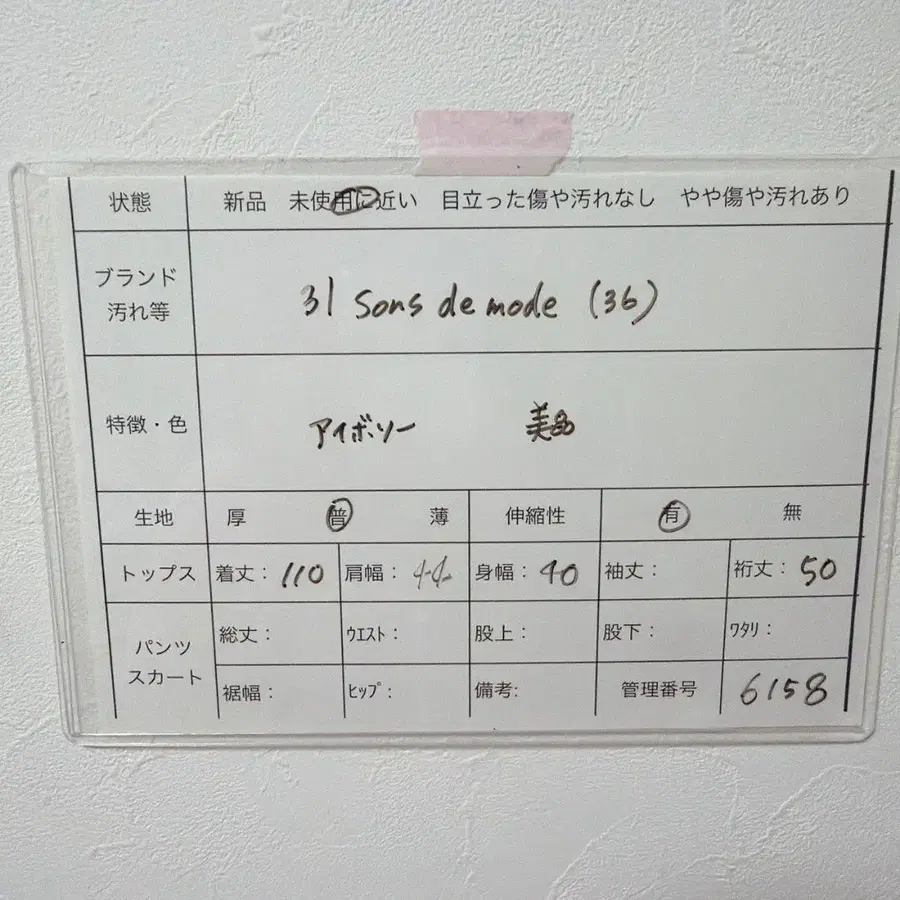 状態 新品 未使用に近い 目立った傷や汚れなし やや傷や汚れあり
ブランド
汚れ等
31 Sons de mode (36)
特徴・色 アイボリー 美品
生地 厚 普 薄 伸縮性 有 無
トップス 着丈: 110 肩幅: 44 身幅: 40 袖丈: 裄丈: 50
パンツ
スカート
総丈: ウエスト: 股上: 股下: ワタリ:
裾幅: ヒップ: 備考: 管理番号 6158